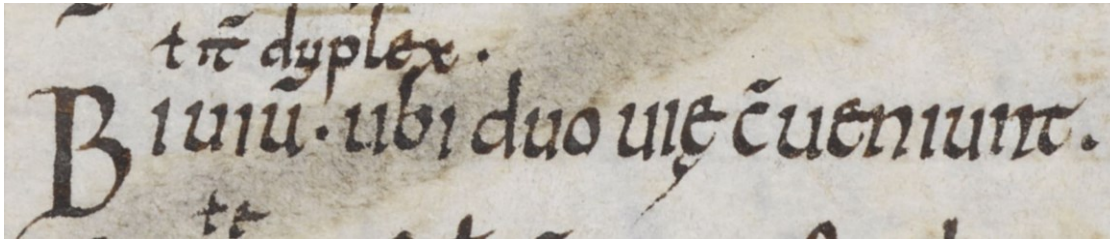 t nt̄ dyplex.
Biuiū. ubi duo uię c̄ueniunt.